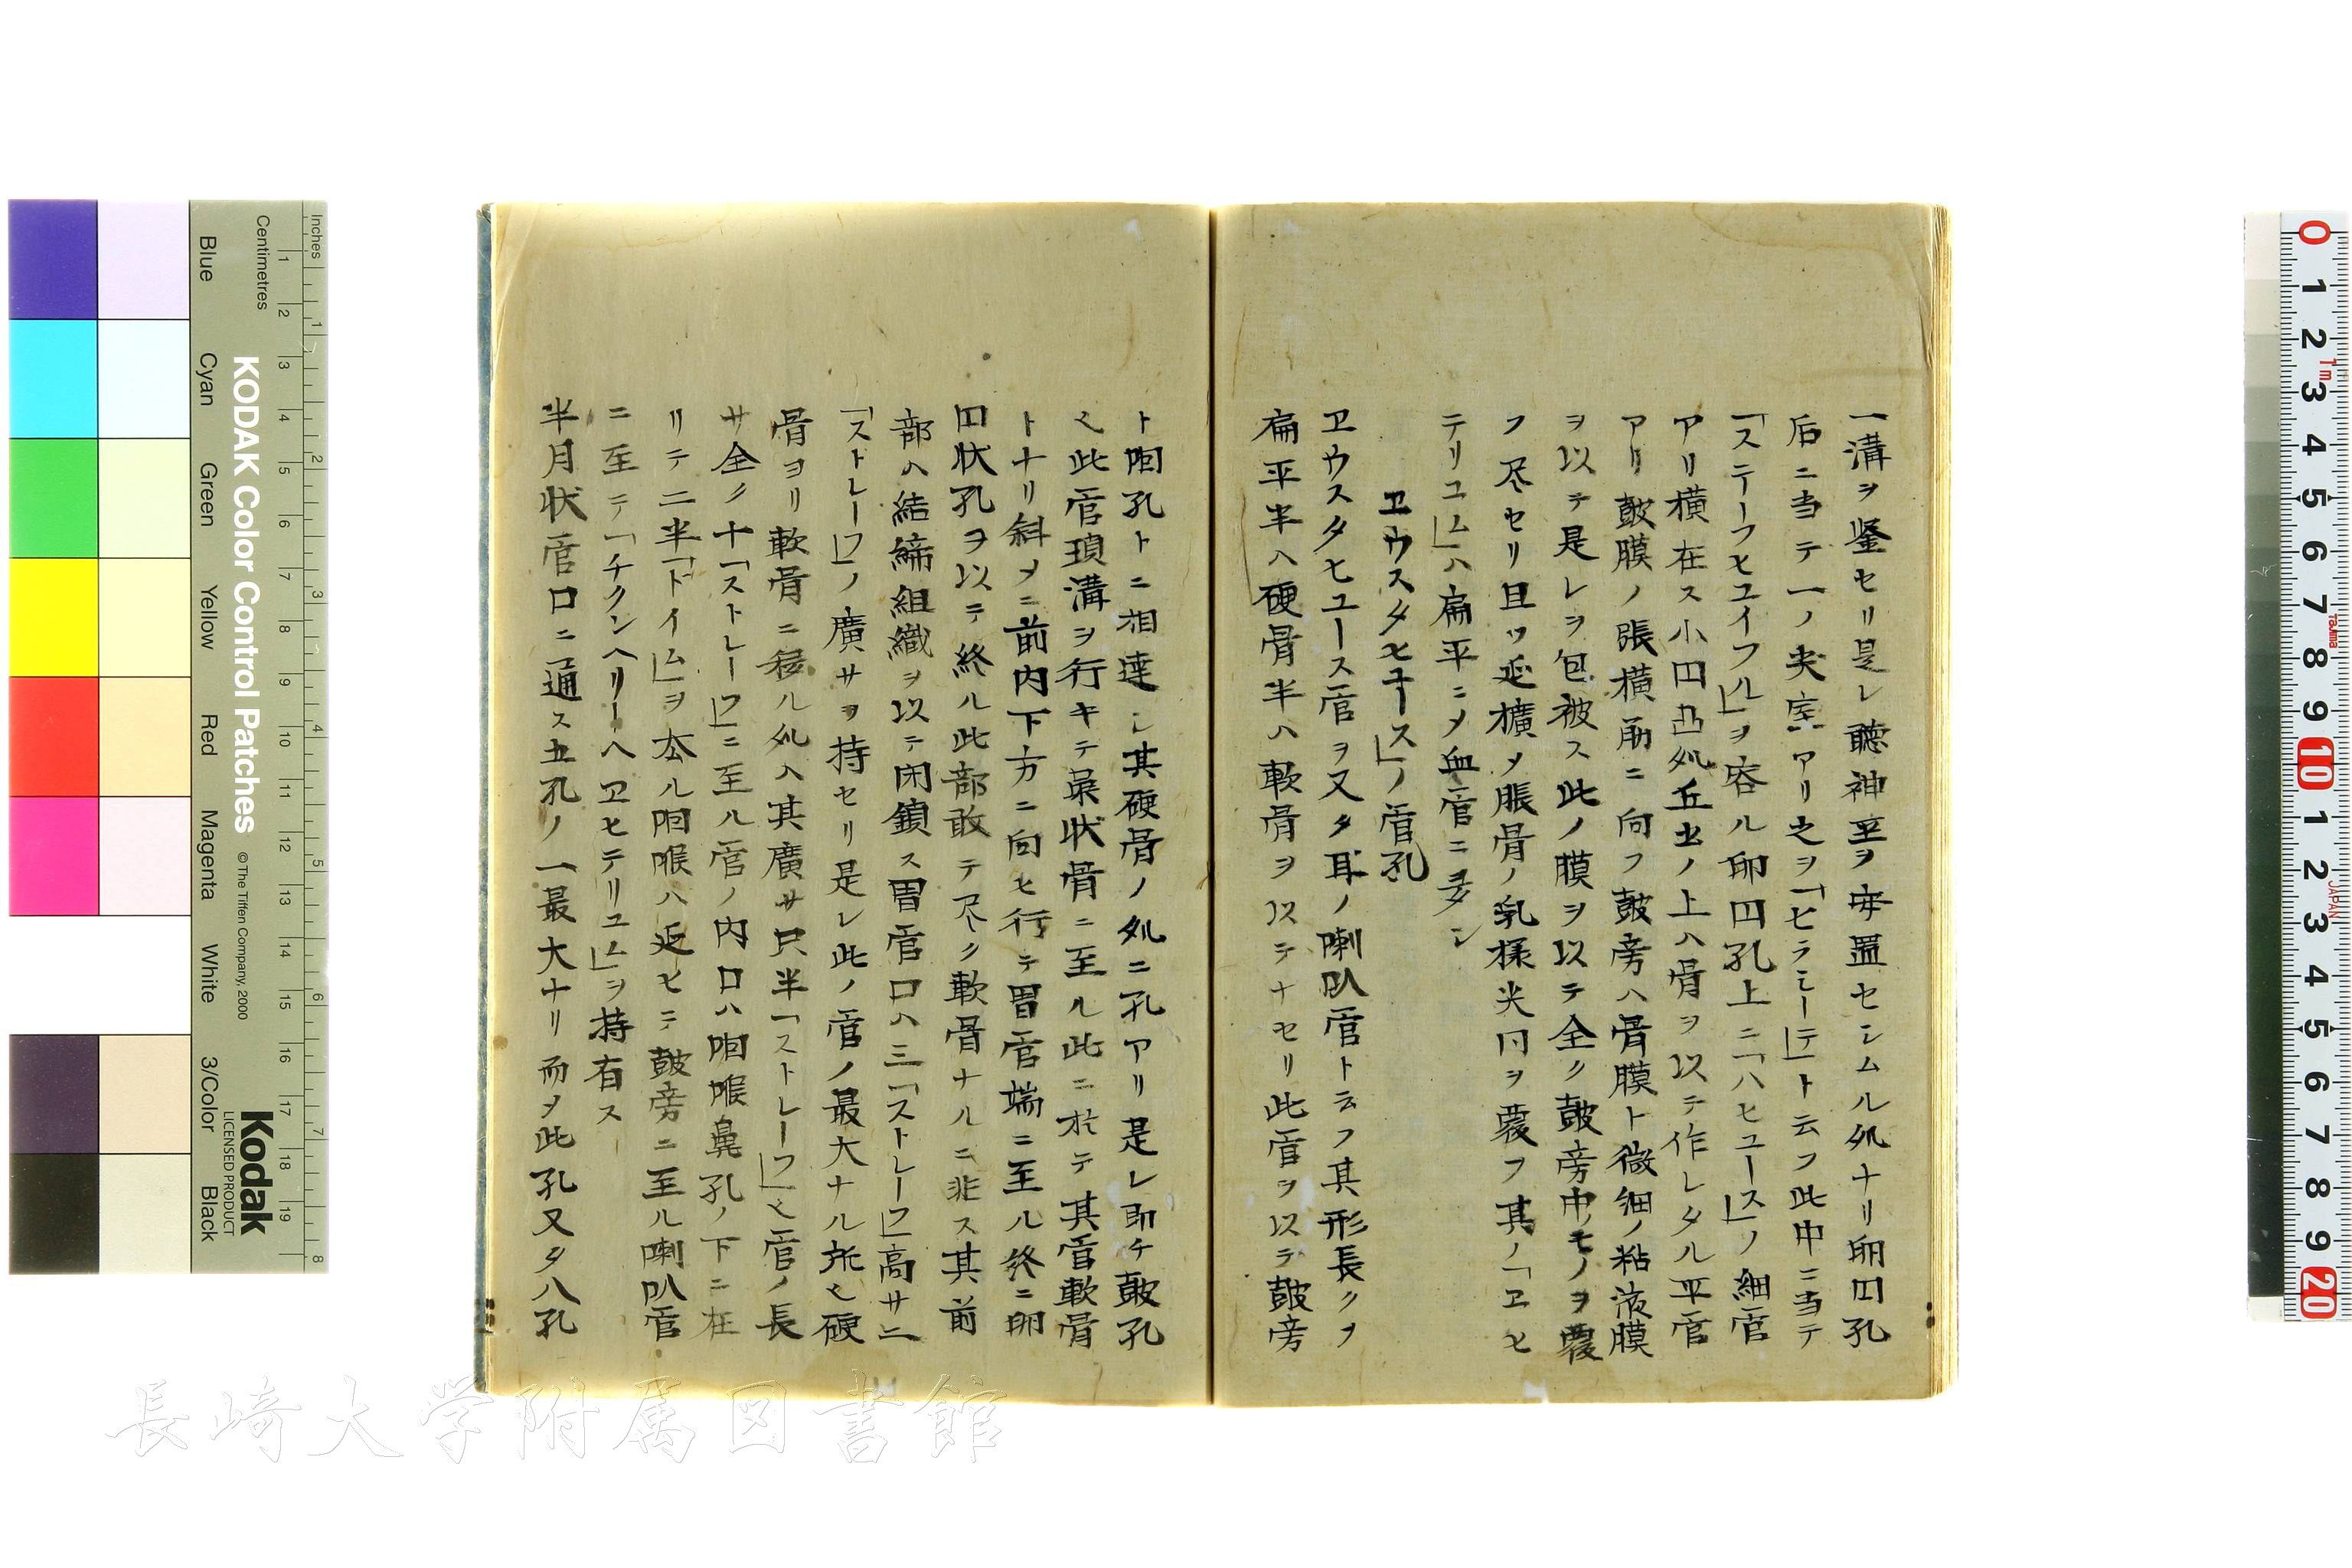 一溝ヲ鑿セリ是レ聴神至ヲ安置セシムル処ナリ卵円孔
后ニ当テ一ノ尖室アリ之ヲ「ヒラミーデ」ト云フ此中ニ当テ
「ステーフヒユイフル」ヲ容ル卵円孔上ニ「ハヒユース」ノ細管
アリ横在ス小円凸処丘出ノ上ハ骨ヲ以テ作レタル平管
アリ鼓膜ノ張横筋ニ向フ鼓旁ハ骨膜ト微細ノ粘液膜
ヲ以テ是レヲ包被ス此ノ膜ヲ以テ全ク鼓旁中ノモノヲ覆
フ尽セリ且ツ延擴メ脹骨ノ乳様尖円ヲ蔓フ其ノ「ヱヒ
テリユム」ハ扁平ニメ血管ニ多シ
ヱウスタヒユース」ノ管孔
ヱウスタヒユース管ヲ又タ耳ノ喇叭管ト云フ其形長クメ
扁平半ハ硬骨半ハ軟骨ヲ以テナセリ此管ヲ以テ鼓旁
ト咽孔トニ相達シ其硬骨ノ処ニ孔アリ是レ即チ鼓孔
也此管瑣溝ヲ行キテ葉状骨ニ至ル此ニ於テ其管軟骨
トナリ斜メニ前内下方ニ向ヒ行テ胃管端ニ至ル終ニ卵
円状孔ヲ以テ終ル此部敢テ尽ク軟骨ナルニ非ス其前
部ハ結締組織ヲ以テ閉鎖ス胃管口ハ三「ストレーフ」高サ二
「ストレーフ」ノ廣サヲ持セリ是レ此ノ管ノ最大ナル所也硬
骨ヨリ軟骨ニ移ル処ハ其廣サ只半「ストレーフ」也管ノ長
サ全ク十「ストレーフ」ニ至ル管ノ内口ハ咽喉鼻孔ノ下ニ在
リテ二半「ドイム」ヲ去ル咽喉ハ延ヒテ鼓旁ニ至ル喇叭管
ニ至テ「チクンヘリーヘヱヒテリユム」ヲ持有ス
半月状管口ニ通ス五孔ノ一最大ナリ而メ此孔又タ八孔
Inches
Centimetres
KODAK Color Control Patches
©The Tiffen Company, 2000
Kodak
LICENSED PRODUCT
Blue Cyan Green Yellow Red Magenta White 3/Color Black
1 2 3 4 5 6 7 8 9 10 11 12 13 14 15 16 17 18 19
1 2 3 4 5 6 7 8
0 1 2 3 4 5 6 7 8 9 10 1 2 3 4 5 6 7 8 9 20
1m
Tajima
JAPAN
長崎大学附属図書館